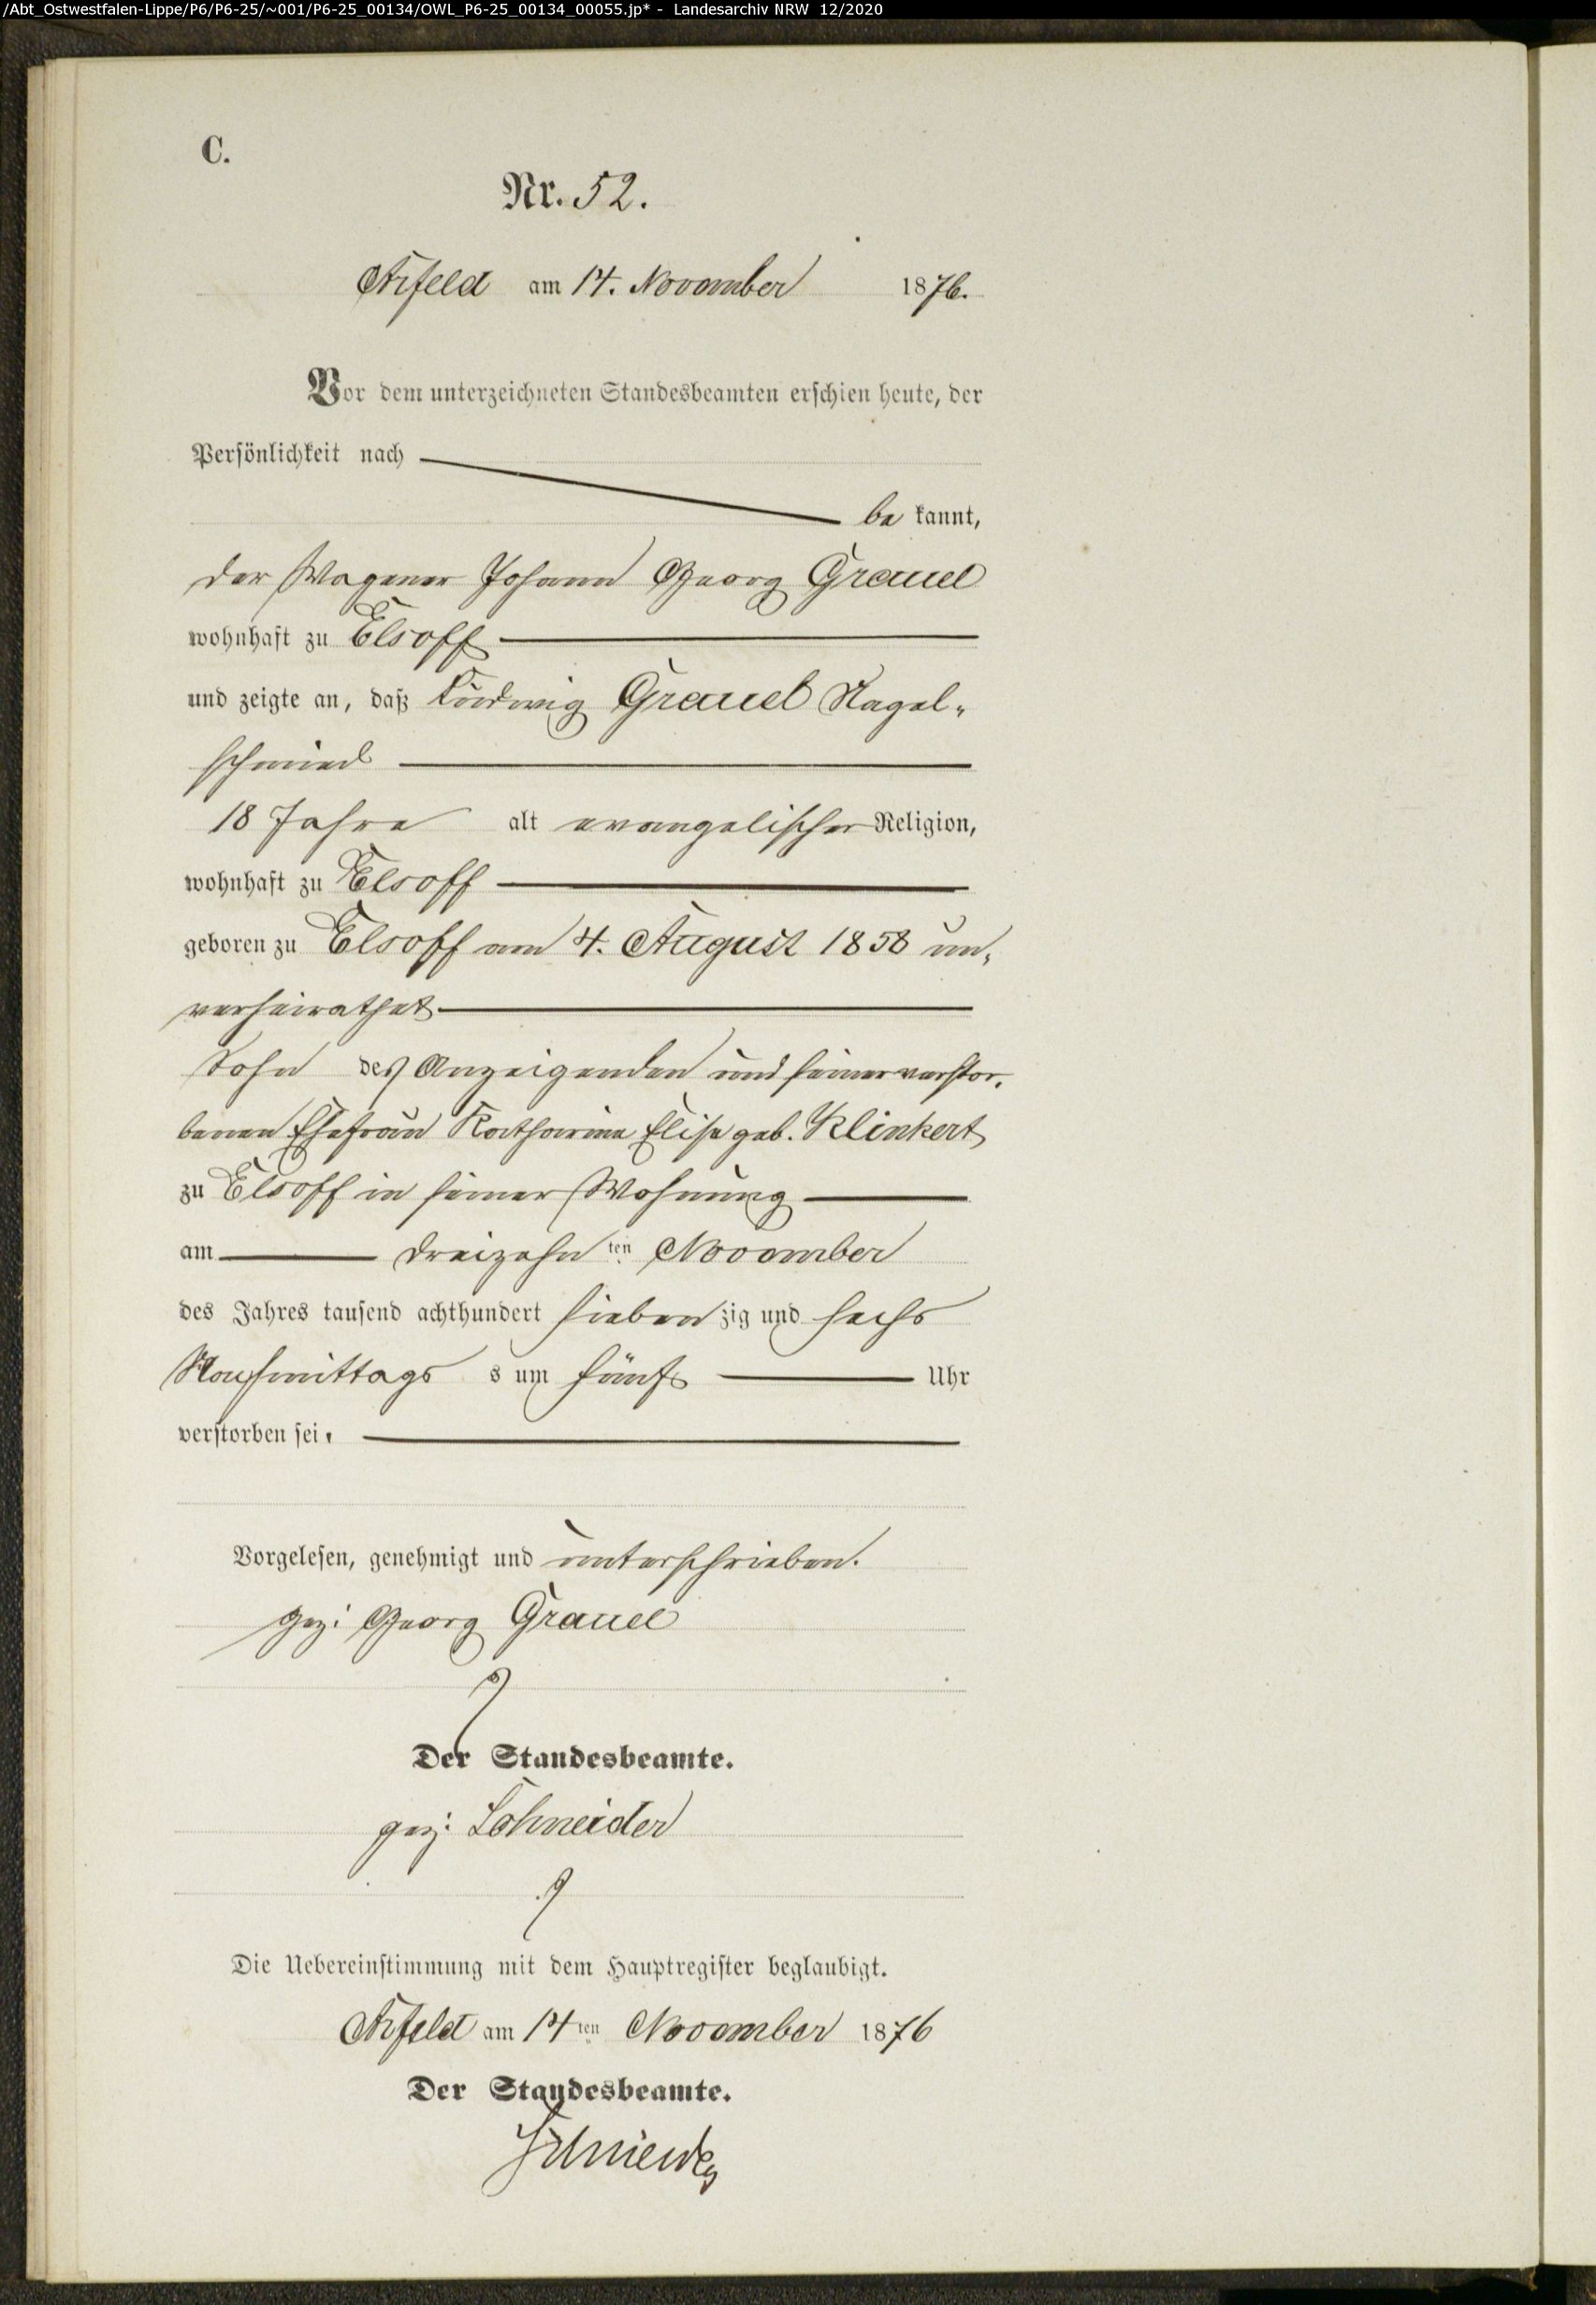 /Abt_Ostwestfalen-Lippe/P6/P6-25/~001/P6-25_00134/OWL_P6-25_00134_00055.jp* - Landesarchiv NRW 12/2020
C.
Nr. 52.
Arfeld am 14. November 1876.
Vor dem unterzeichneten Standesbeamten erschien heute, der
Persönlichkeit nach
be kannt,
der Wagener Johann Georg Grauel
wohnhaft zu Elsoff
und zeigte an, daß Ludwig Grauel Nagel-
schmied
18 Jahre alt evangelischer Religion,
wohnhaft zu Elsoff
geboren zu Elsoff am 4. August 1858 un-
verheirathet
Sohn des Anzeigenden und seiner verstor-
benen Ehefrau Katharina Elise geb. Klinkert
zu Elsoff in seiner Wohnung
am dreizehn ten November
des Jahres tausend achthundert sieben zig und sechs
Nachmittags s um fünf Uhr
verstorben sei.
Vorgelesen, genehmigt und unterschrieben.
gez: Georg Grauel
Der Standesbeamte.
gez: Schneider
Die Uebereinstimmung mit dem Hauptregister beglaubigt.
Arfeld am 14ten November 1876
Der Standesbeamte.
Schneider